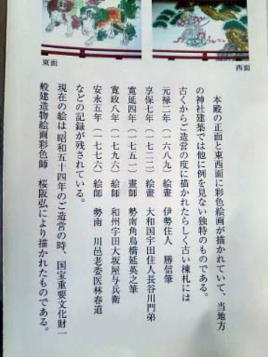 東面
西面
本殿の正面と東西面に彩色絵画が描かれていて、当地方
の神社建築では他に例を見ない独特のものである。
古くからご造営の度に描かれたらしく古い棟札には
元禄二年（一六八九）絵畫　伊勢住人　勝信筆
享保七年（一七二二）絵畫　大和国宇田住人長谷川門弟
寛延四年（一七五一）畫師　勢南角鳥橋延英之筆
寛政八年（一七九六）絵師　和州宇田大坂屋与兵衛
安永五年（一七七六）絵師　勢南　川邑老委医林春道
などの記録が残されている。
現在の絵は昭和五十四年のご造営の時、国宝重要文化財一
般建造物絵画彩色師　桜阪弘により描かれたものである。